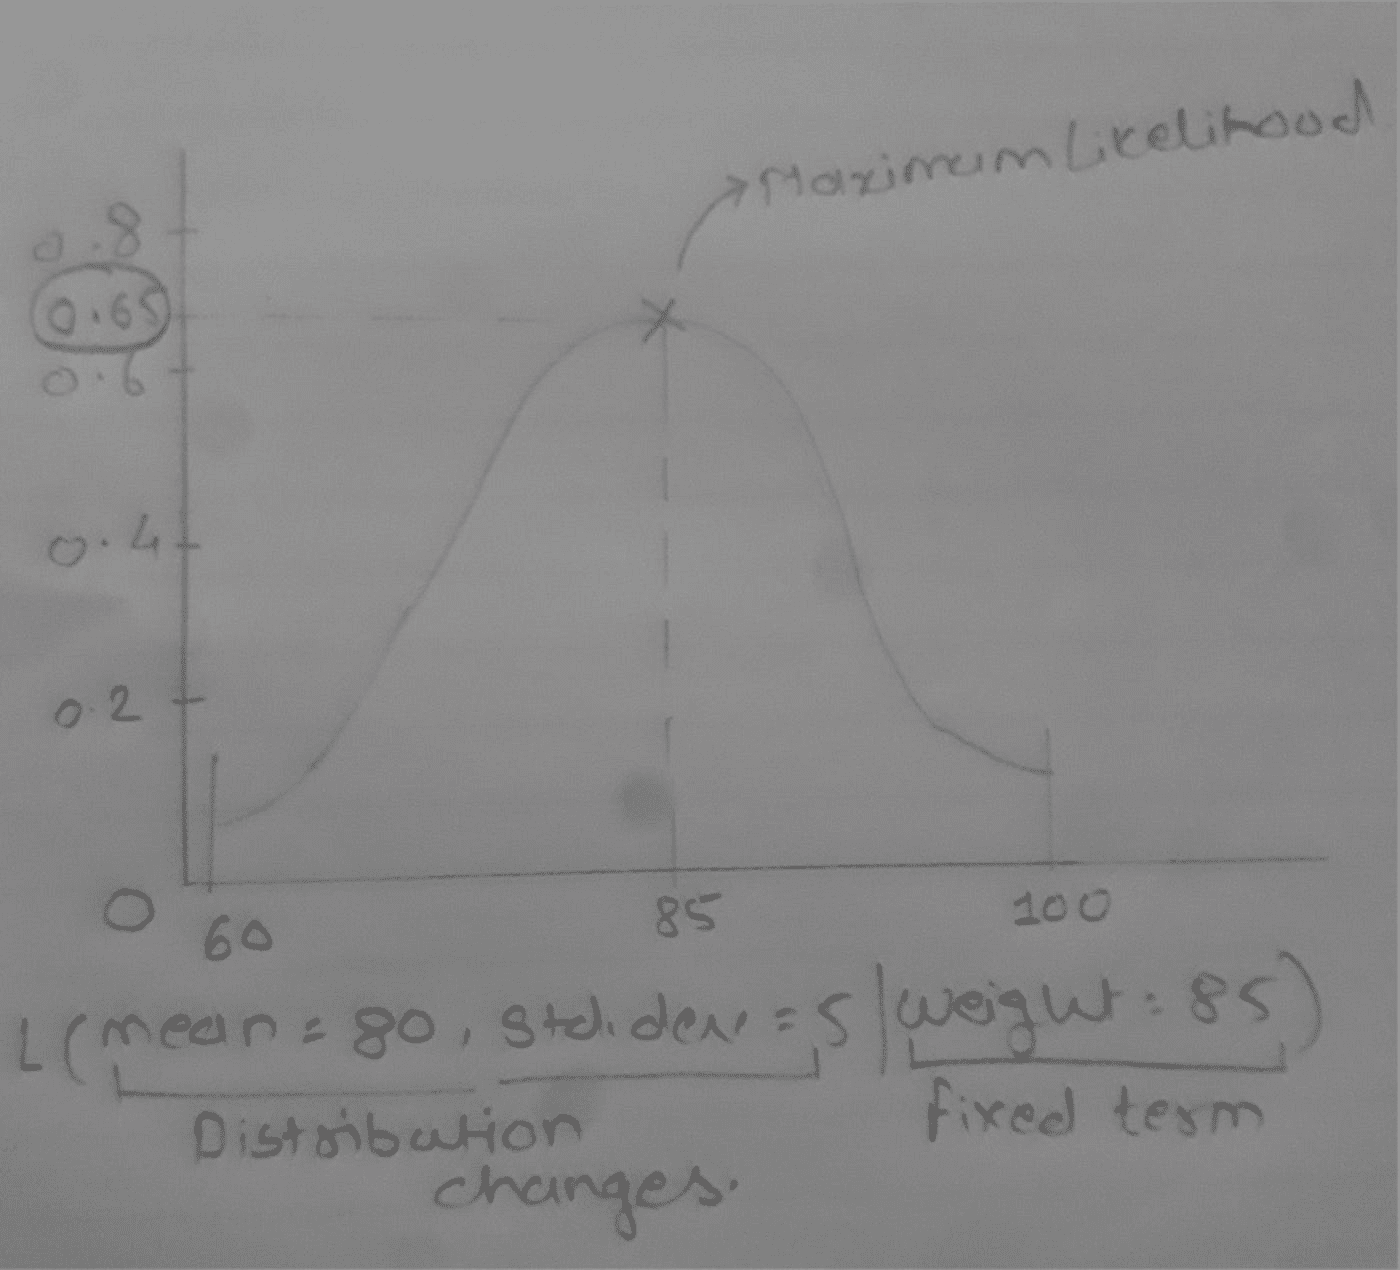 Maximum Likelihood
0.8
0.65
0.6
0.4
0.2
0
60 85 100
L(mean = 80, std.dev. = 5 | weight = 85)
Distribution fixed term
changes.